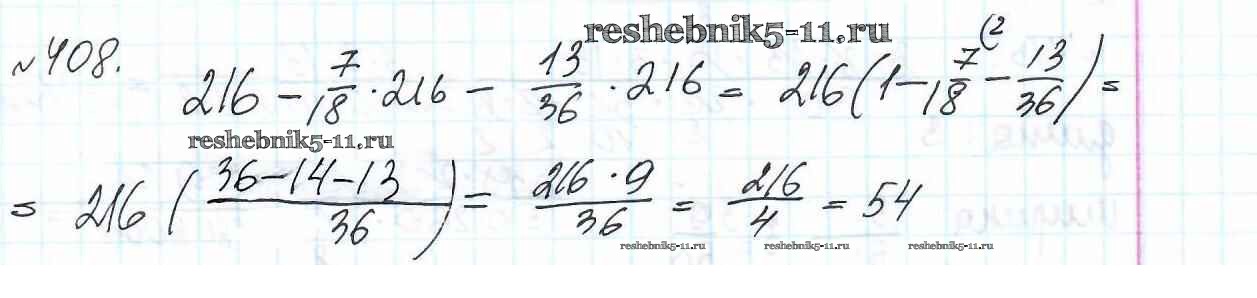 reshebnik5-11.ru
№408.
216 - 7/18 · 216 - 13/36 · 216 = 216(1 - 7/18 (2 - 13/36) =
reshebnik5-11.ru
= 216 ( (36-14-13)/36 ) = (216 · 9)/36 = 216/4 = 54
reshebnik5-11.ru reshebnik5-11.ru reshebnik5-11.ru